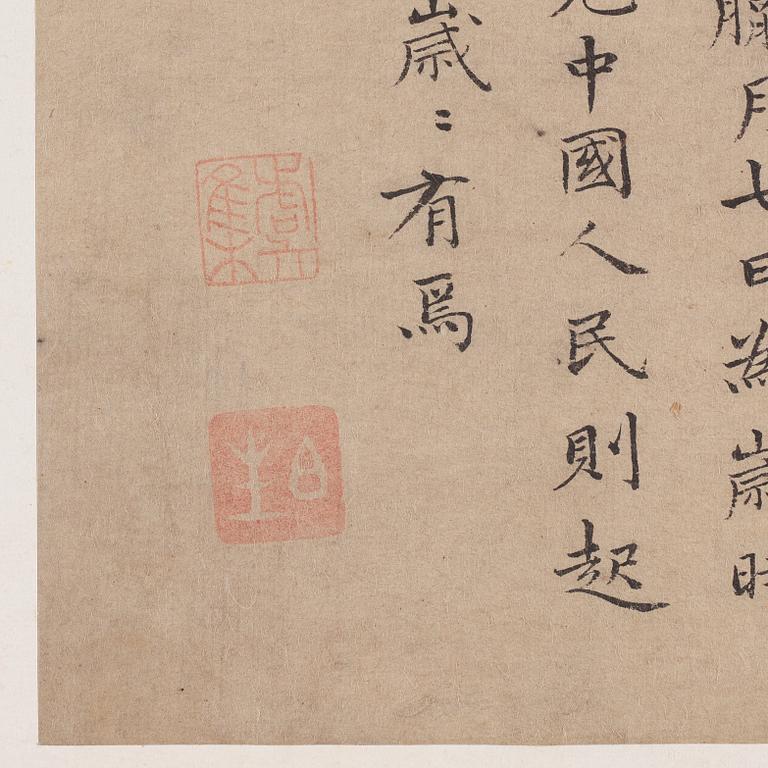 月七日為歲時
中國人民則起
歲〻有爲